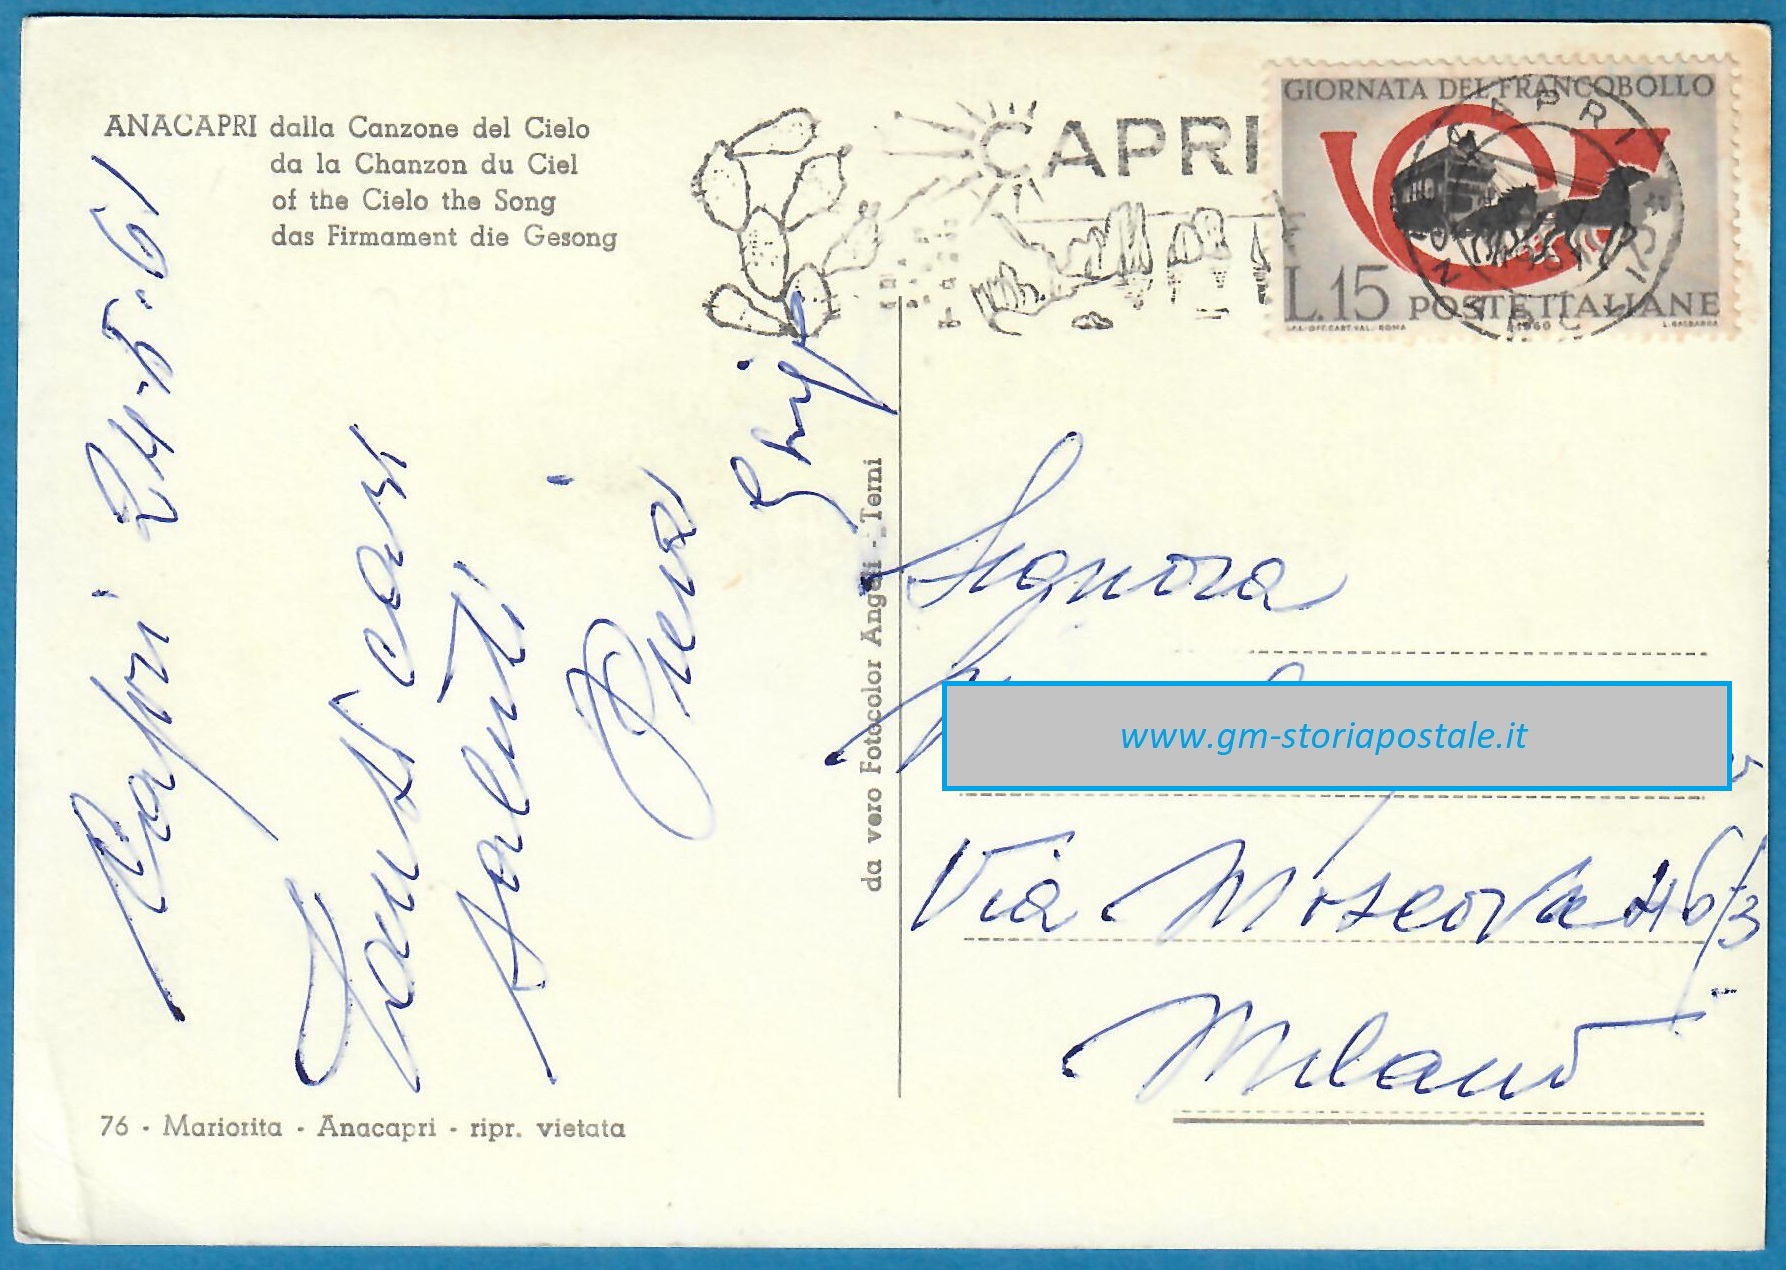 ANACAPRI dalla Canzone del Cielo
da la Chanzon du Ciel
of the Cielo the Song
das Firmament die Gesong
CAPRI
GIORNATA DEL FRANCOBOLLO
L.15 POSTE ITALIANE
I.P.S.-OFF.CART.VAL.-ROMA 1960 L. GASBARRA
CAPRI
NAPOLI
Capri 24-5-61
Tanti cari
saluti
Piera
da vero Fotocolor Angeli - Terni
Signora
www.gm-storiapostale.it
Via Moscova 46/3
Milano
76 - Mariorita - Anacapri - ripr. vietata